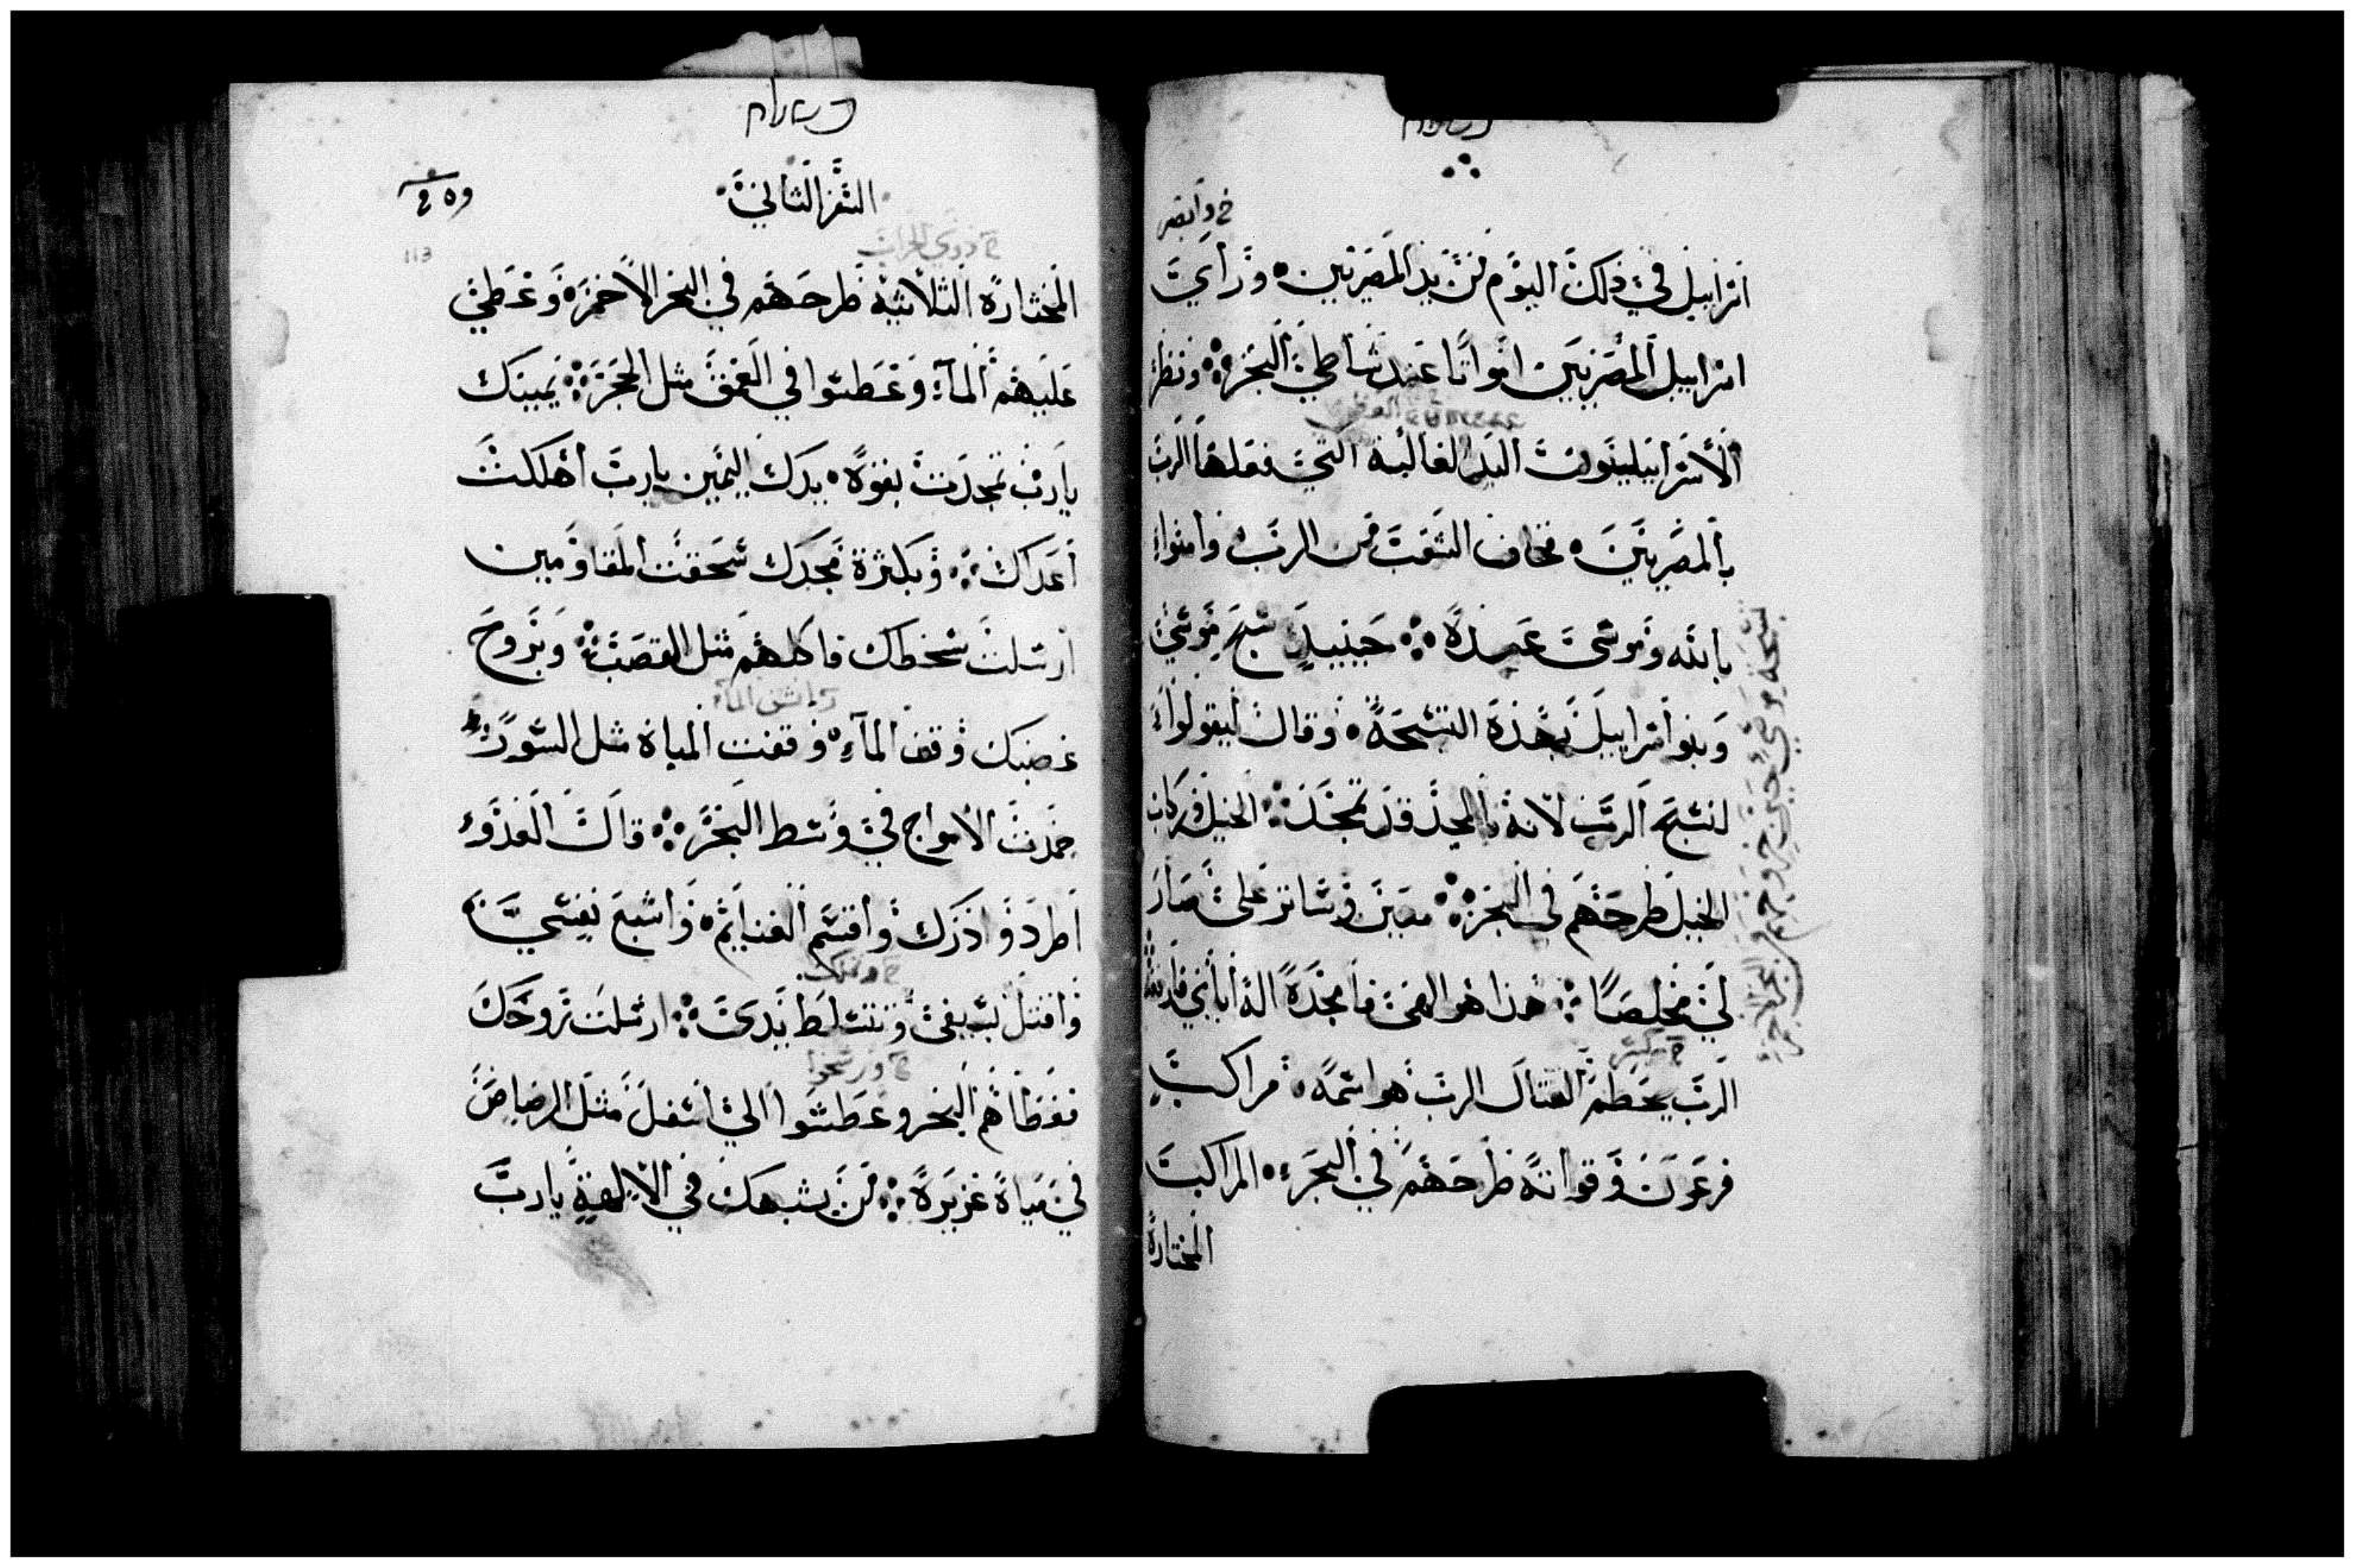 خ وابصر
اسراييل في ذلك اليوم من يد المصريين ورأي
اسراييل المصريين امواتا عند شاطئ البحر ونظر
الاسراييليون اليد الغالبة التي فعلها الرب
بالمصريين فخاف الشعب من الرب وامنوا
بالله وموسى عبده حينيذ سبح موسي
وبنو اسراييل بهذه التسبحة وقال ليقولوا
لنسبح الرب لانه بالمجد قد تمجد الخيل وركاب
الخيل طرحهم في البحر معين وساتر علي صار
لي مخلصا هذا هو الهي فامجده اله ابائي فارفعه
الرب يحطم القتال الرب هو اسمه مراكب
فرعون وقواته طرحهم في البحر المراكب
المختارة
السفر الثاني
113
المختارة الثلاثية طرحهم في البحر الاحمر وغطي
عليهم الماء وغطسوا في العمق مثل الحجر يمينك
يارب تمجدت بقوة يدك اليمين يارب أهلكت
أعداك وبكثرة مجدك سحقت المقاومين
ارسلت سخطك فاكلهم مثل القصب وبروح
غضبك وقف الماء وقفت المياه مثل السور
جمدت الامواج في وسط البحر قال العدو
أطرد وادرك واقسم الغنايم واشبع نفسي
واقتل بسيفي وتتسلط يدي ارسلت روحك
فغطاهم البحر وغطسوا الي اسفل مثل الرصاص
في مياه غزيرة من يشبهك في الالهة يارب